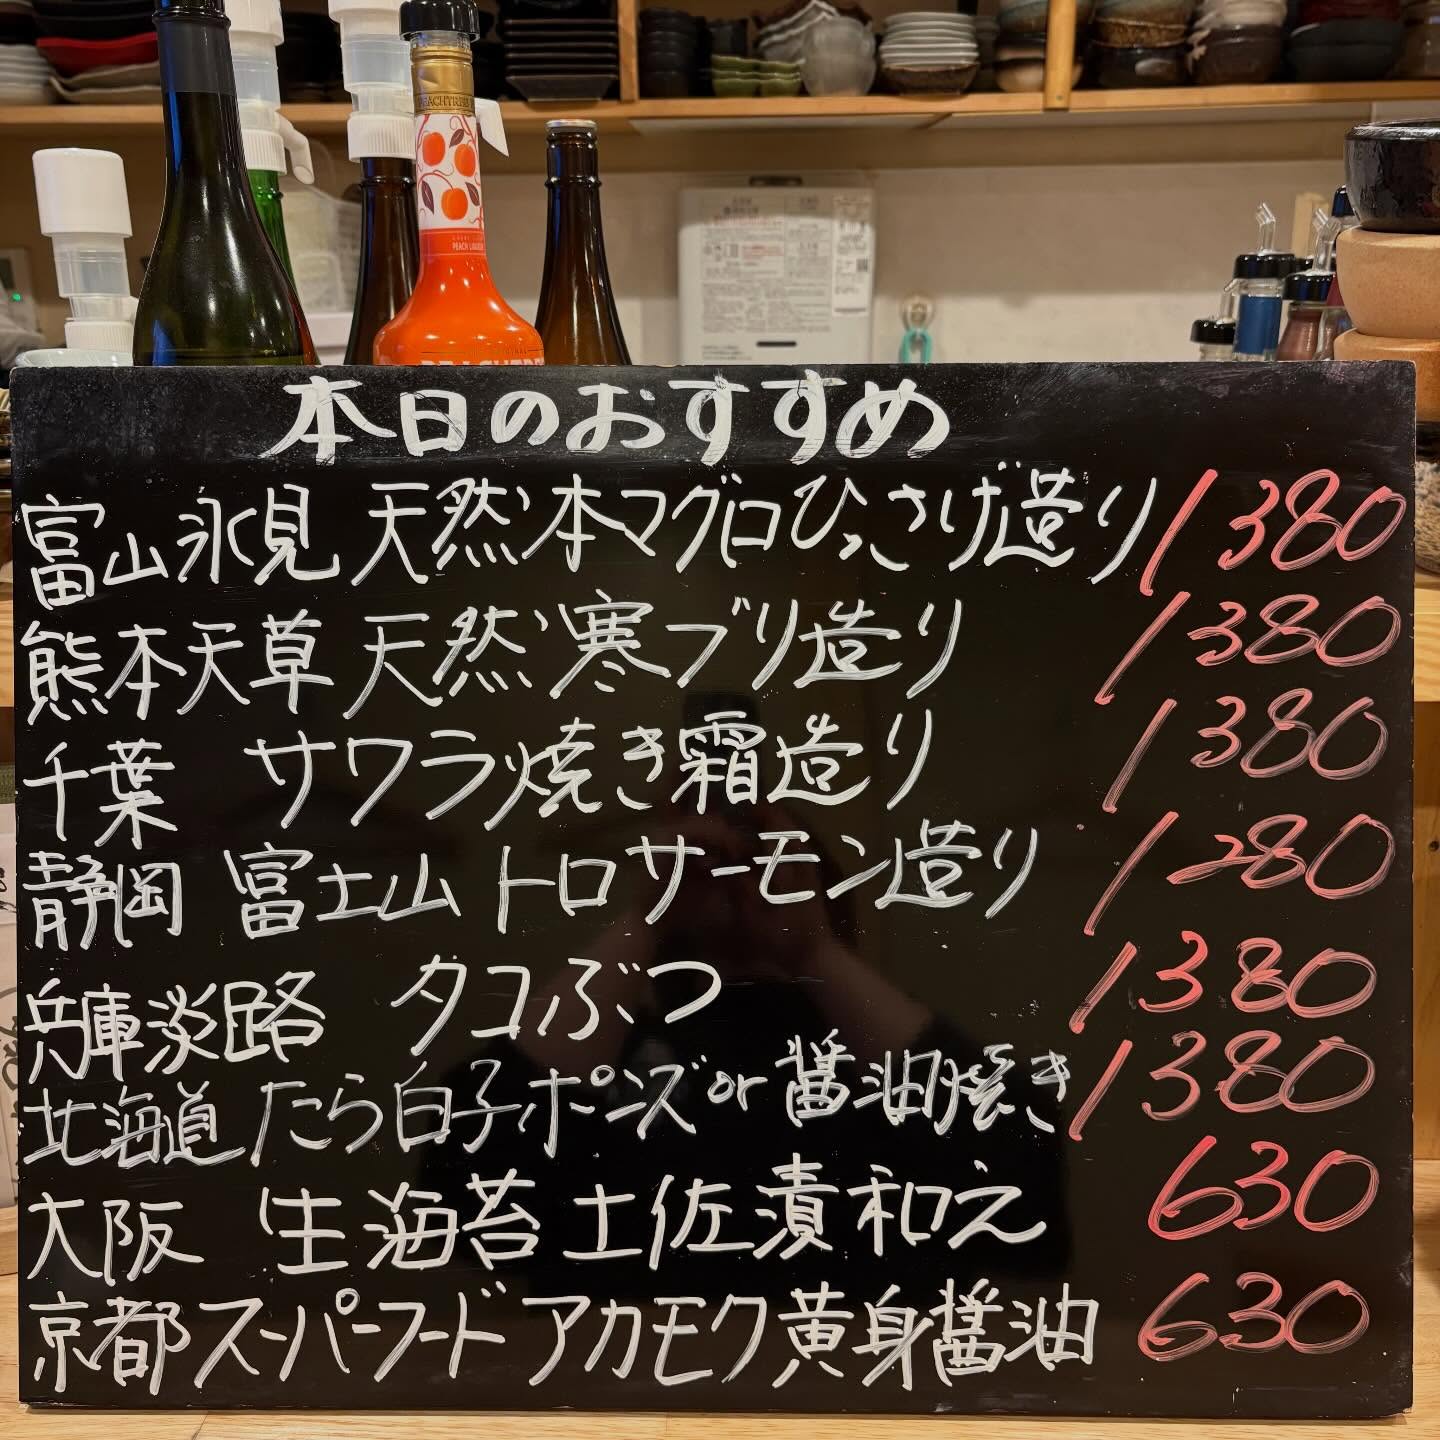 PEACHTREE
PEACH LIQUEUR
本日のおすすめ
富山氷見 天然本マグロひっさげ造り 1380
熊本天草 天然寒ブリ造り 1380
千葉 サワラ焼き霜造り 1380
静岡 富士山 トロサーモン造り 1280
兵庫淡路 タコぶつ 1380
北海道 たら白子ポンズor醤油焼き 1380
大阪 生海苔土佐漬和え 630
京都スーパーフード アカモク黄身醤油 630